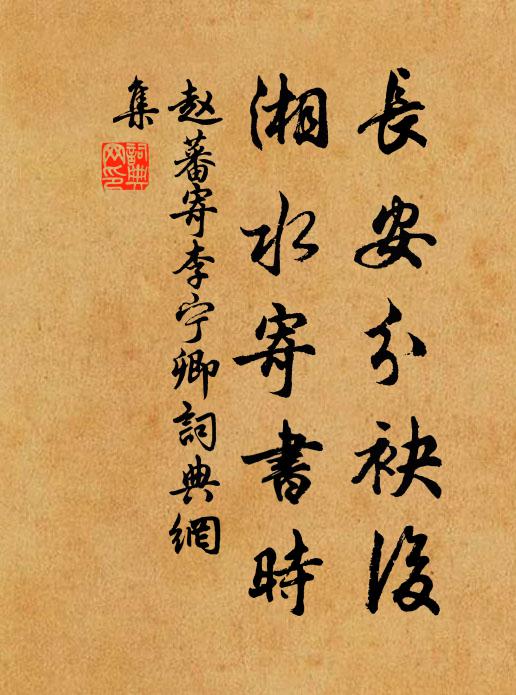 長安分袂後
湘水寄書時
赵蕃寄李宁卿詞典網
集
詞典
网印